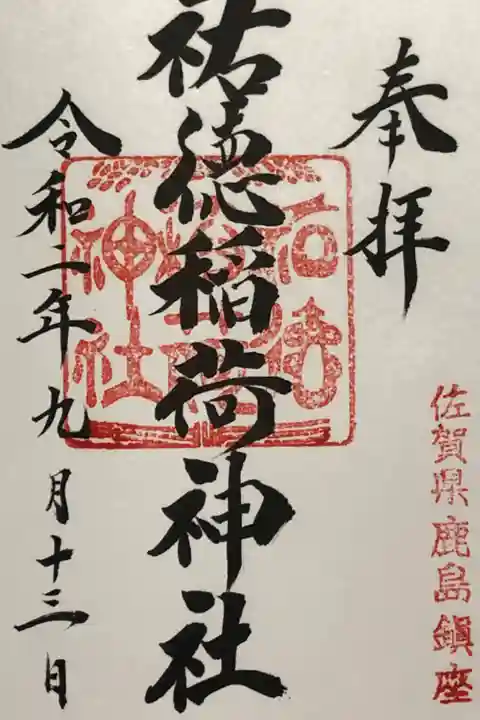 奉拝
佐賀県鹿島鎮座
祐徳稲荷神社
令和二年九月十三日